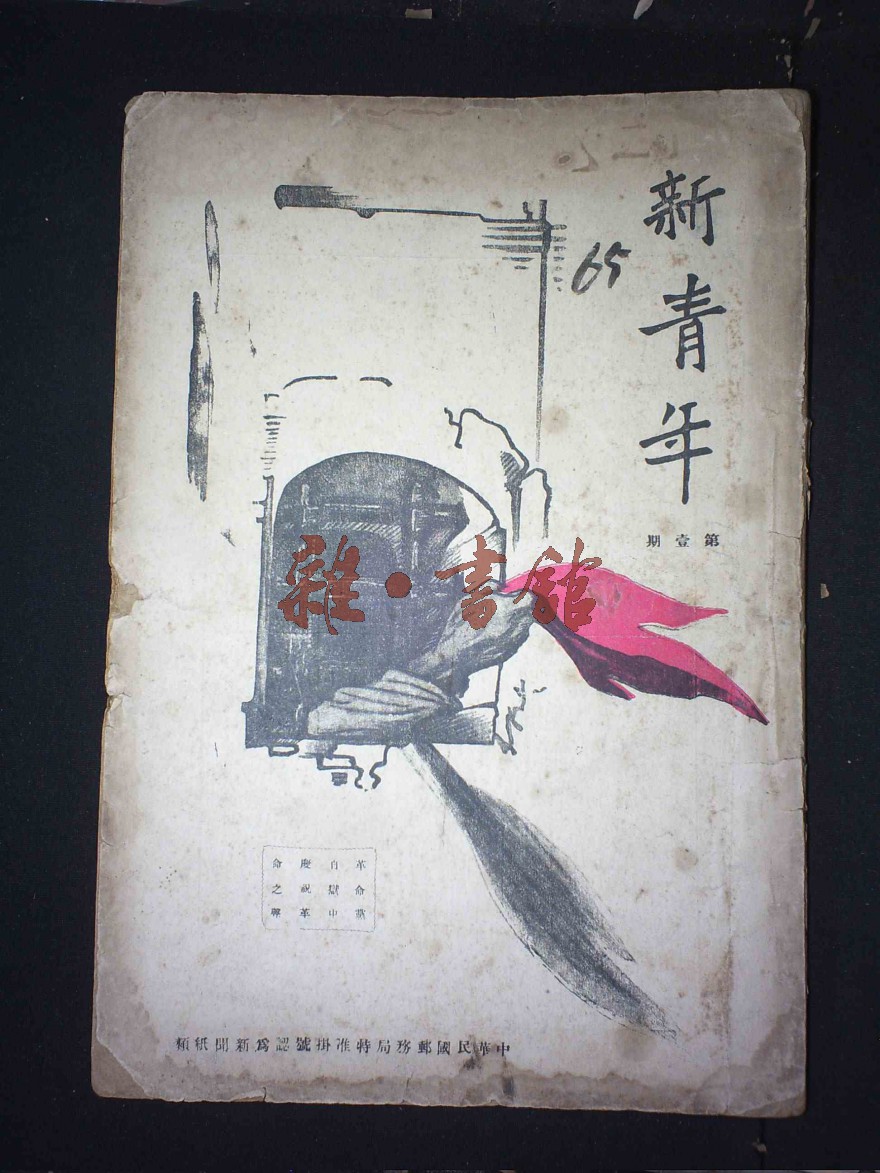 新青年
65
第壹期
雜·書館
革命黨
自獄中
慶祝革
命之聲
中華民國郵務局特准掛號認爲新聞紙類